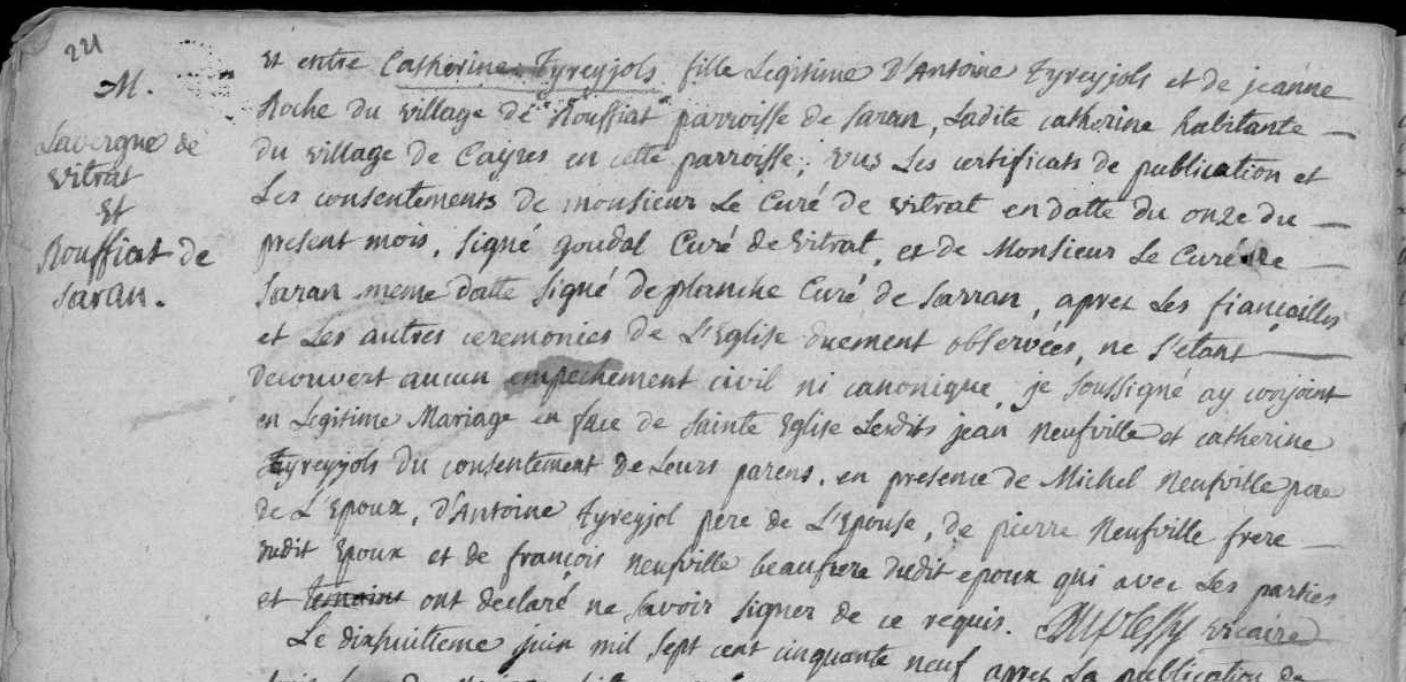 221
M.
Lavergne de
vitrat
Et
Rouffiat de
saran.
et entre Catherine Tyreyjols fille Legitime D'Antoine Tyreyjols et de jeanne
Roche du village de Rouffiat parroisse de saran, Ladite catherine habitante
du village de Cayres en cette parroisse; vus Les certificats de publication et
Les consentements de monsieur Le Curé de vitrat en datte du onze du
present mois, signé goudal Curé de vitrat, et de Monsieur Le Curé de
saran meme datte signé deplanche Curé de sarran, aprez Les fiançailles
et Les autres ceremonies de L'Eglise duement observées, ne s'etant
decouvert aucun empechement civil ni canonique, je soussigné ay conjoint
en Legitime Mariage en face de sainte Eglise Lesdits jean Neufville et catherine
Tyreyjols du consentement de Leurs parens, en presence de Michel Neufville pere
de L'Epoux, d'Antoine Tyreyjol pere de L'Epouse, de pierre Neufville frere
dudit Epoux et de françois neufville beaufrere dudit epoux qui avec Les parties
et temoins ont declaré ne savoir signer de ce requis. Duplessy vicaire
Le dixhuitieme juin mil sept cent cinquante neuf aprez La publication de